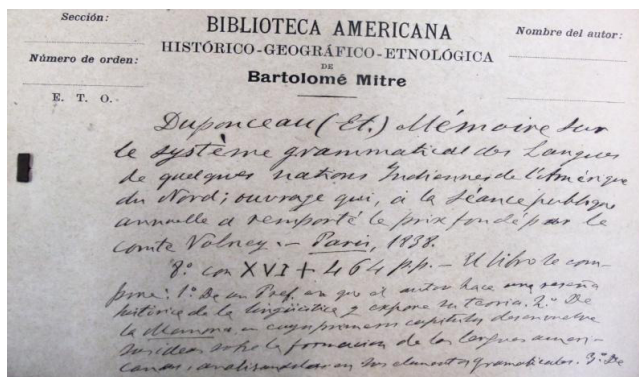 Sección:
BIBLIOTECA AMERICANA
Nombre del autor:
HISTÓRICO-GEOGRÁFICO-ETNOLÓGICA
Número de orden:
DE
Bartolomé Mitre
E. T. O.
Duponceau (Et.) Mémoire sur
le système grammatical des Langues
de quelques nations Indiennes de l'Amérique
du Nord; ouvrage qui, a la Séance publique
annuelle a remporté le prix fondé par le
comte Volney. — Paris, 1838.
8º con XVI + 464 p.p. — El libro se com-
pone: 1º De un Pref. en que el autor hace una reseña
histórica de la lingüística y expone su teoria. 2º De
la Memoria, en cuyos primeros capitulos desenvuelve
sus ideas sobre la formacion de las lenguas ameri-
canas, analisandolas en sus elementos gramaticales. 3º De